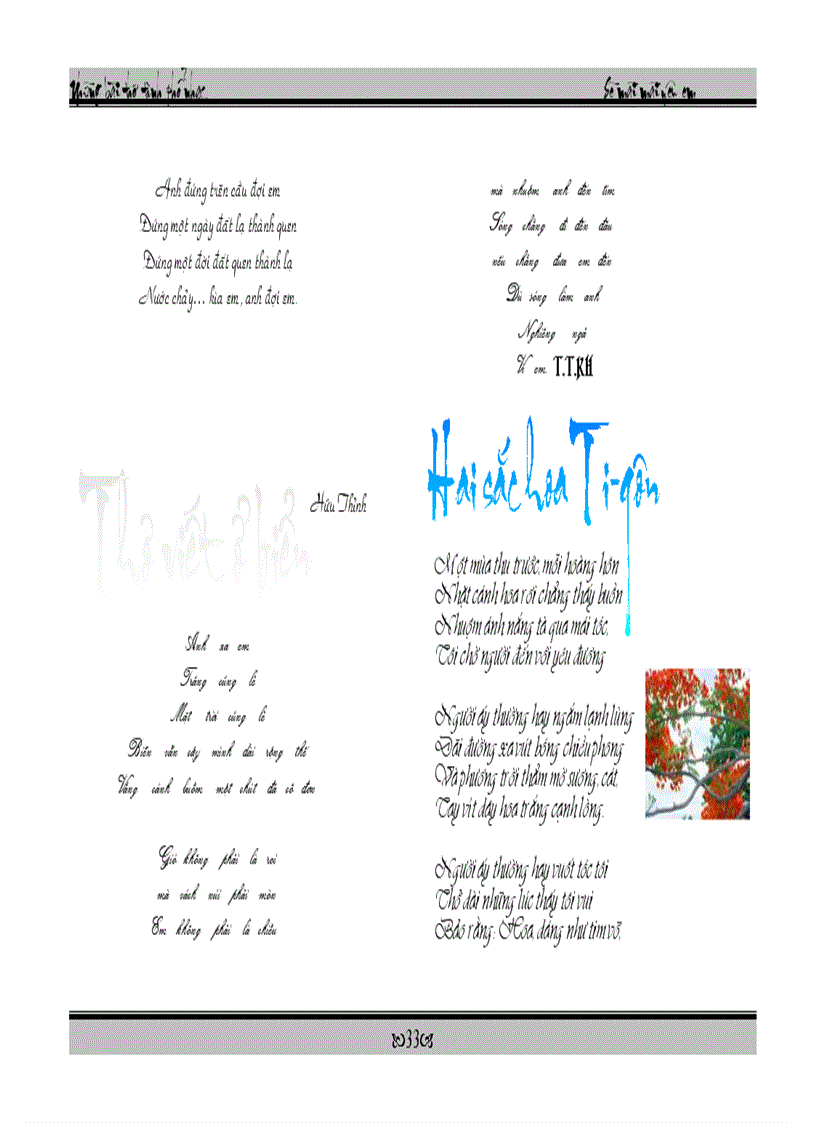 Những bài thơ tình phổ nhạc
Sẽ mãi mãi yêu em
Anh đứng trên cầu đợi em
Đứng một ngày đất lạ thành quen
Đứng một đời đất quen thành lạ
Nước chảy... kìa em, anh đợi em.
Thơ viết ở biển
Hữu Thỉnh
Anh xa em
Trăng cũng lẻ
Mặt trời cũng lẻ
Biển vẫn cậy mình dài rộng thế
Vắng cánh buồm một chút đã cô đơn
Gió không phải là roi
mà vách núi phải mòn
Em không phải là chiều
mà nhuộm anh đến tím
Sóng chẳng đi đến đâu
nếu chẳng đưa em đến
Dù sóng làm anh
Nghiêng ngả
Vì em. T.T.KH
Hai sắc hoa Ti-gôn
Một mùa thu trước, mỗi hoàng hôn
Nhặt cánh hoa rơi chẳng thấy buồn
Nhuộm ánh nắng tà qua mái tóc,
Tôi chờ người đến với yêu đương
Người ấy thường hay ngắm lạnh lùng
Dãi đường xa vút bóng chiều phong
Và phương trời thẳm mờ sương, cát,
Tay vít dây hoa trắng cạnh lòng.
Người ấy thường hay vuốt tóc tôi
Thở dài những lúc thấy tôi vui
Bảo rằng: Hoa, dáng như tim vỡ,
33